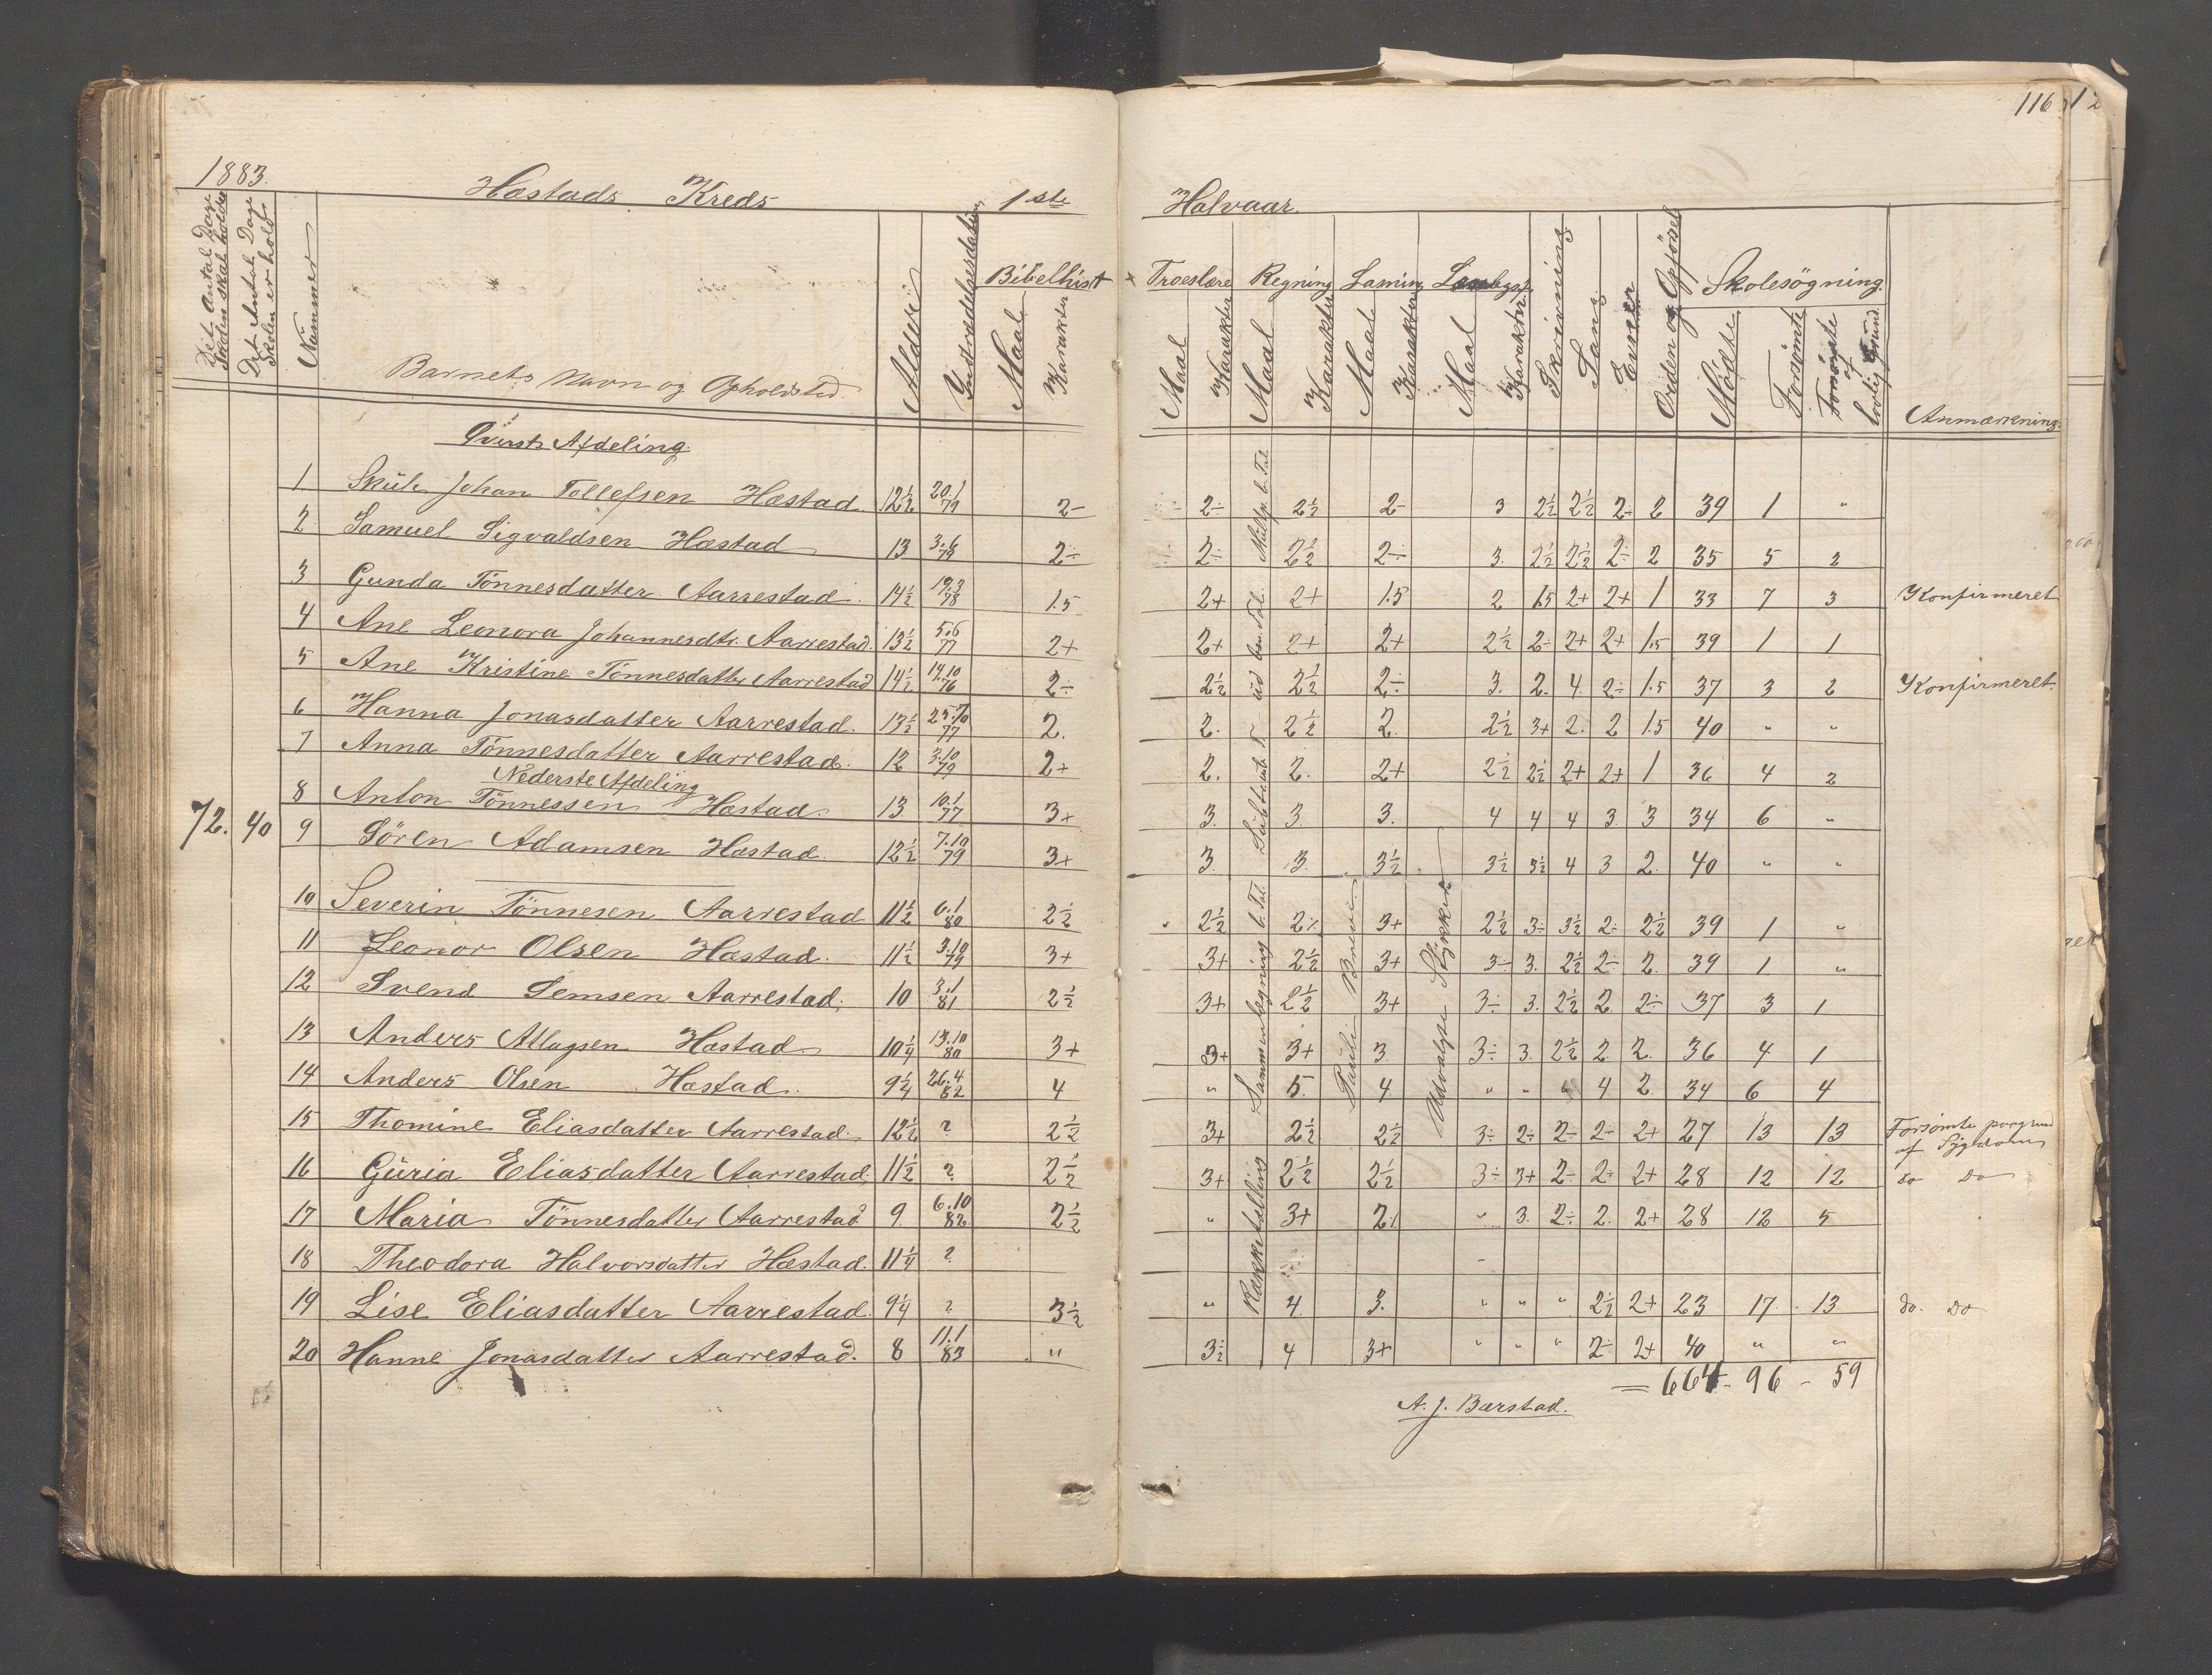 116
1883.
Hæstads Kreds 1ste Halvaar.
Det Antal Dage Skolen skal holdes
Det Antal Dage Skolen er holdt
Nummer
Barnets Navn og Opholdsted.
Alder
Indtrædelsesdatum
Bibelhist
Maal
Karakter
Troeslære
Maal
Karakter
Regning
Maal
Karakter
Læsning
Maal
Karakter
Maal
Karakter
Skrivning
Sang
Evner
Orden og Opførsel
Skolesøgning.
Mødte
Forsømte
Forsømte af lovlig Grund.
Anmærkning.
Øverste Afdeling.
1 Skule Johan Tollefsen Hæstad 12½ 20.1 79 2- 2÷ 2½ 2- 3 2½ 2½ 2- 2 39 1 "
2 Samuel Sigvaldsen Hæstad 13 3.6 79 2÷ 2÷ 2½ 2÷ 3. 2½ 2½ 2÷ 2 35 5 2
3 Gunda Tönnesdatter Aarrestad. 14½ 19.3 78 1.5 2+ 2+ 1.5 2 1.5 2+ 2+ 1 33 7 3 Konfirmeret
4 Ane Leonora Johannesdtr. Aarrestad. 13½ 5.6 77 2+ 2+ 2+ 2+ 2½ 2÷ 2+ 2+ 1.5 39 1 1
5 Ane Kristine Tönnesdatter Aarrestad 14½ 14.10 76 2÷ 2½ 2½ 2÷ 3. 2. 4. 2÷ 1.5 37 3 2 Konfirmeret.
6 Hanna Jonasdatter Aarrestad. 13½ 77 2. 2. 2½ 2. 2½ 3+ 2. 2 1.5 40 " "
7 Anna Tönnesdatter Aarrestad. 12 3.10 79 2+ 2. 2. 2+ 2½ 2½ 2+ 2+ 1 36 4 2
Nederste Afdeling
72. 40
8 Anton Tönnessen Hæstad. 13 10.1 77 3+ 3. 3. 3. 4 4 4 3. 3 34 6 "
9 Sören Adamsen Hæstad. 12½ 7.10 79 3+ 3 3. 3½ 3½ 3½ 4 3 2. 40 " "
10 Severin Tönnesen Aarrestad 11½ 6.1 80 2½ 2½ 2÷ 3+ 2½ 3÷ 3½ 2÷ 2½ 39 1 "
11 Leonor Olsen Hæstad. 11½ 3.10 79 3+ 3+ 2½ 3+ 3÷ 3. 2½ 2÷ 2. 39 1 "
12 Svend Semsen Aarrestad. 10 3.1 81 2½ 3+ 2½ 3+ 3÷ 3. 2½ 2 2÷ 37 3 1
13 Anders Atlagsen Hæstad 10¼ 13.10 80 3+ 3+ 3+ 3. 3÷ 3. 2½ 2 2. 36 4 1
14 Anders Olsen Hæstad. 9¼ 26.4 82 4 " 5. 4 " " " 4 2 34 6 4
15 Thomine Eliasdatter Aarrestad. 12½ ? 2½ 3+ 2½ 2½ 3÷ 2÷ 2÷ 2÷ 2+ 27 13 13 Forsömte paagrund af Sygdom
16 Guria Eliasdatter Aarrestad. 11½ ? 2½ 3+ 2½ 2½ 3÷ 3+ 2÷ 2÷ 2+ 28 12 12 do do
17 Maria Tönnesdatter Aarrestad 9 6.10 82 2½ " 3+ 2÷ " 3. 2÷ 2. 2+ 28 12 5
18 Theodora Halvorsdatter Hæstad. 11¼ ?
19 Lise Eliasdatter Aarrestad. 9¼ ? 3½ " 4. 3. " " " 2½ 2+ 23 17 13 do. do
20 Hanne Jonasdatter Aarrestad. 8 11.1 83 " 3½ 4 3+ " " " 2÷ 2+ 40 " "
Subtrak. T. ud ben. Tal.
Sammenlægning b. Tal.
Rækketælling
Pauli Breve.
Udvalgte Stykker
= 664 - 96 - 59
A. J. Bærstad.